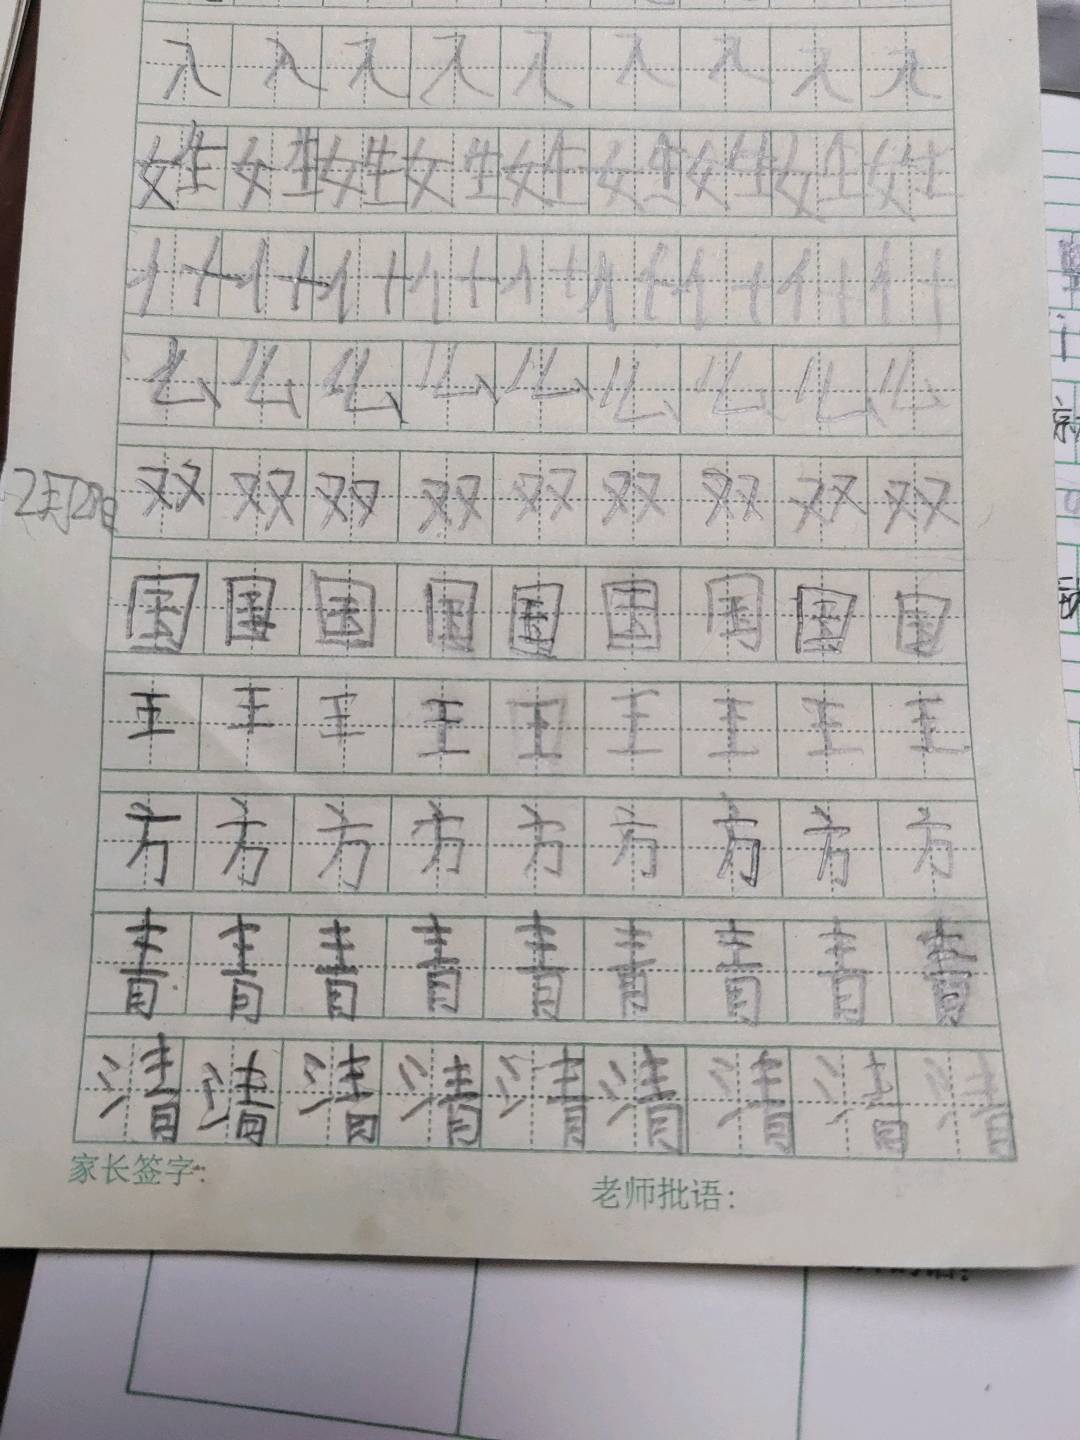 姓 姓 姓 姓 姓 姓 姓 姓 姓
什 什 什 什 什 什 什 什 什
么 么 么 么 么 么 么 么 么
双 双 双 双 双 双 双 双 双
国 国 国 国 国 国 国 国 国
王 王 王 王 王 王 王 王 王
方 方 方 方 方 方 方 方 方
青 青 青 青 青 青 青 青 青
清 清 清 清 清 清 清 清 清
家长签字:
老师批语: